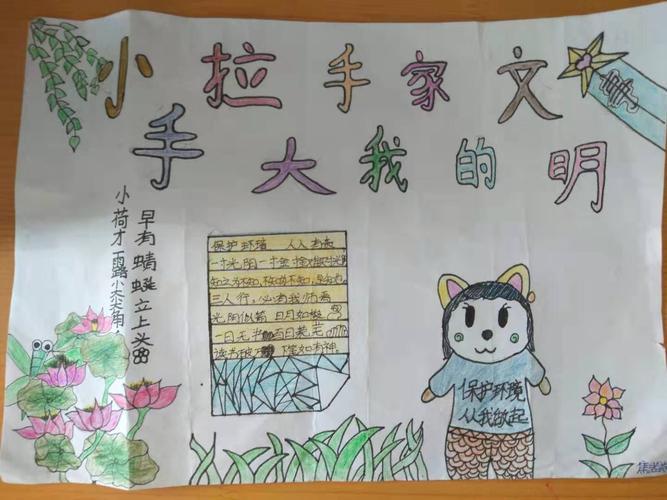 小拉手家文
手大我的明
事
小荷才露尖尖角
早有蜻蜓立上头
保护环境 人人有责
一寸光阴一寸金
知之为知之，不知为不知，是知也
三人行，必有我师焉
光阴似箭 日月如梭
一日无书 百日荒芜
读书破万 下笔如有神
保护环境
从我做起